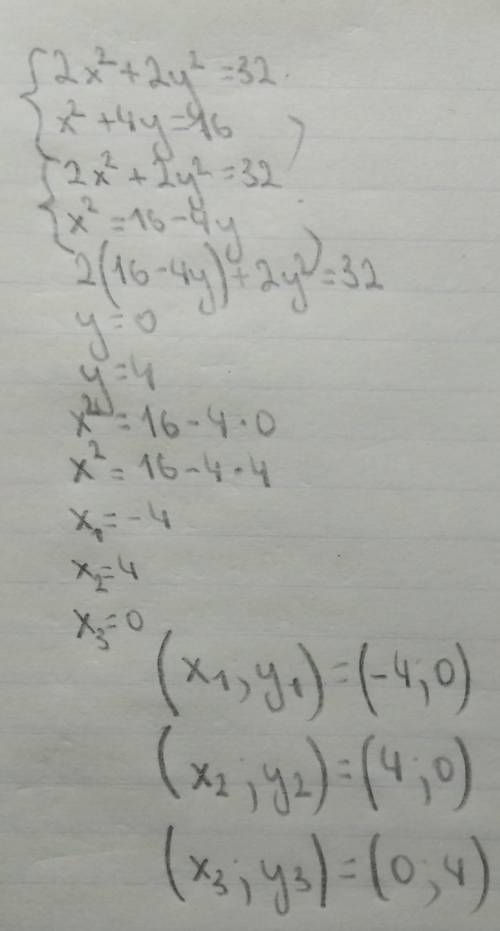 { 2x² + 2y² = 32
x² + 4y = 16
{ 2x² + 2y² = 32
x² = 16 - 4y
2(16 - 4y) + 2y² = 32
y = 0
y = 4
x² = 16 - 4 · 0
x² = 16 - 4 · 4
x₁ = -4
x₂ = 4
x₃ = 0
(x₁, y₁) = (-4; 0)
(x₂; y₂) = (4; 0)
(x₃; y₃) = (0; 4)